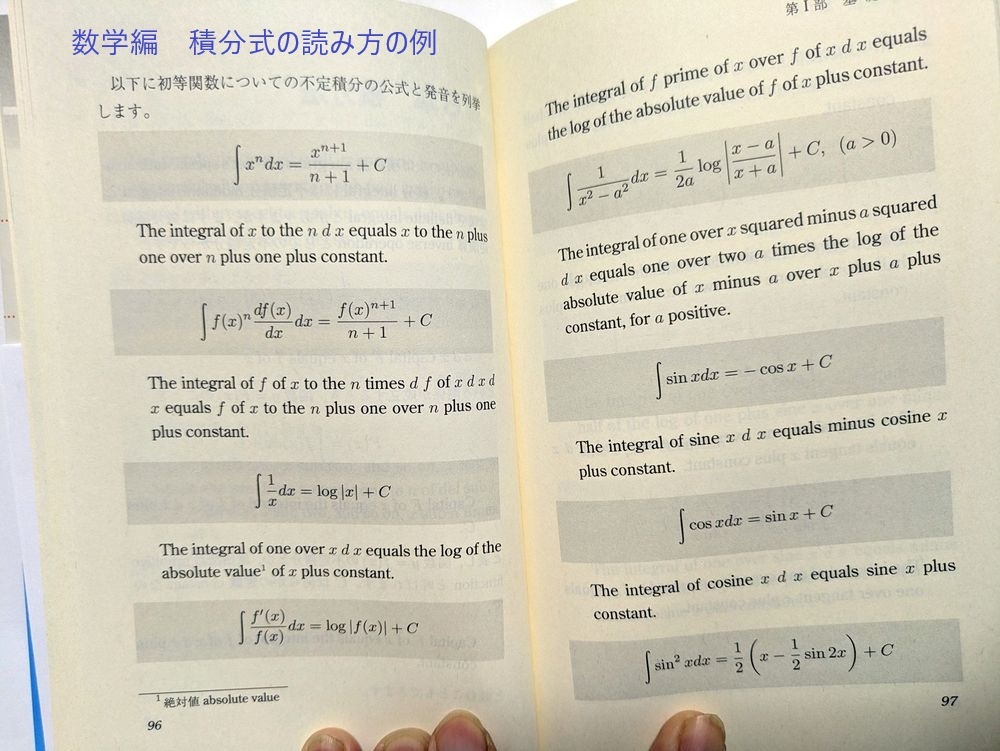 数学編 積分式の読み方の例
以下に初等関数についての不定積分の公式と発音を列挙
します。
∫ xⁿ dx = xⁿ⁺¹/(n + 1) + C
The integral of x to the n d x equals x to the n plus
one over n plus one plus constant.
∫ f(x)ⁿ df(x)/dx dx = f(x)ⁿ⁺¹/(n + 1) + C
The integral of f of x to the n times d f of x d x d
x equals f of x to the n plus one over n plus one
plus constant.
∫ 1/x dx = log |x| + C
The integral of one over x d x equals the log of the
absolute value¹ of x plus constant.
∫ f′(x)/f(x) dx = log |f(x)| + C
¹ 絶対値 absolute value
96
第 I 部
The integral of f prime of x over f of x d x equals
the log of the absolute value of f of x plus constant.
∫ 1/(x² − a²) dx = 1/2a log |(x − a)/(x + a)| + C, (a > 0)
The integral of one over x squared minus a squared
d x equals one over two a times the log of the
absolute value of x minus a over x plus a plus
constant, for a positive.
∫ sin xdx = − cos x + C
The integral of sine x d x equals minus cosine x
plus constant.
∫ cos xdx = sin x + C
The integral of cosine x d x equals sine x plus
constant.
∫ sin² xdx = 1/2 (x − 1/2 sin 2x) + C
97